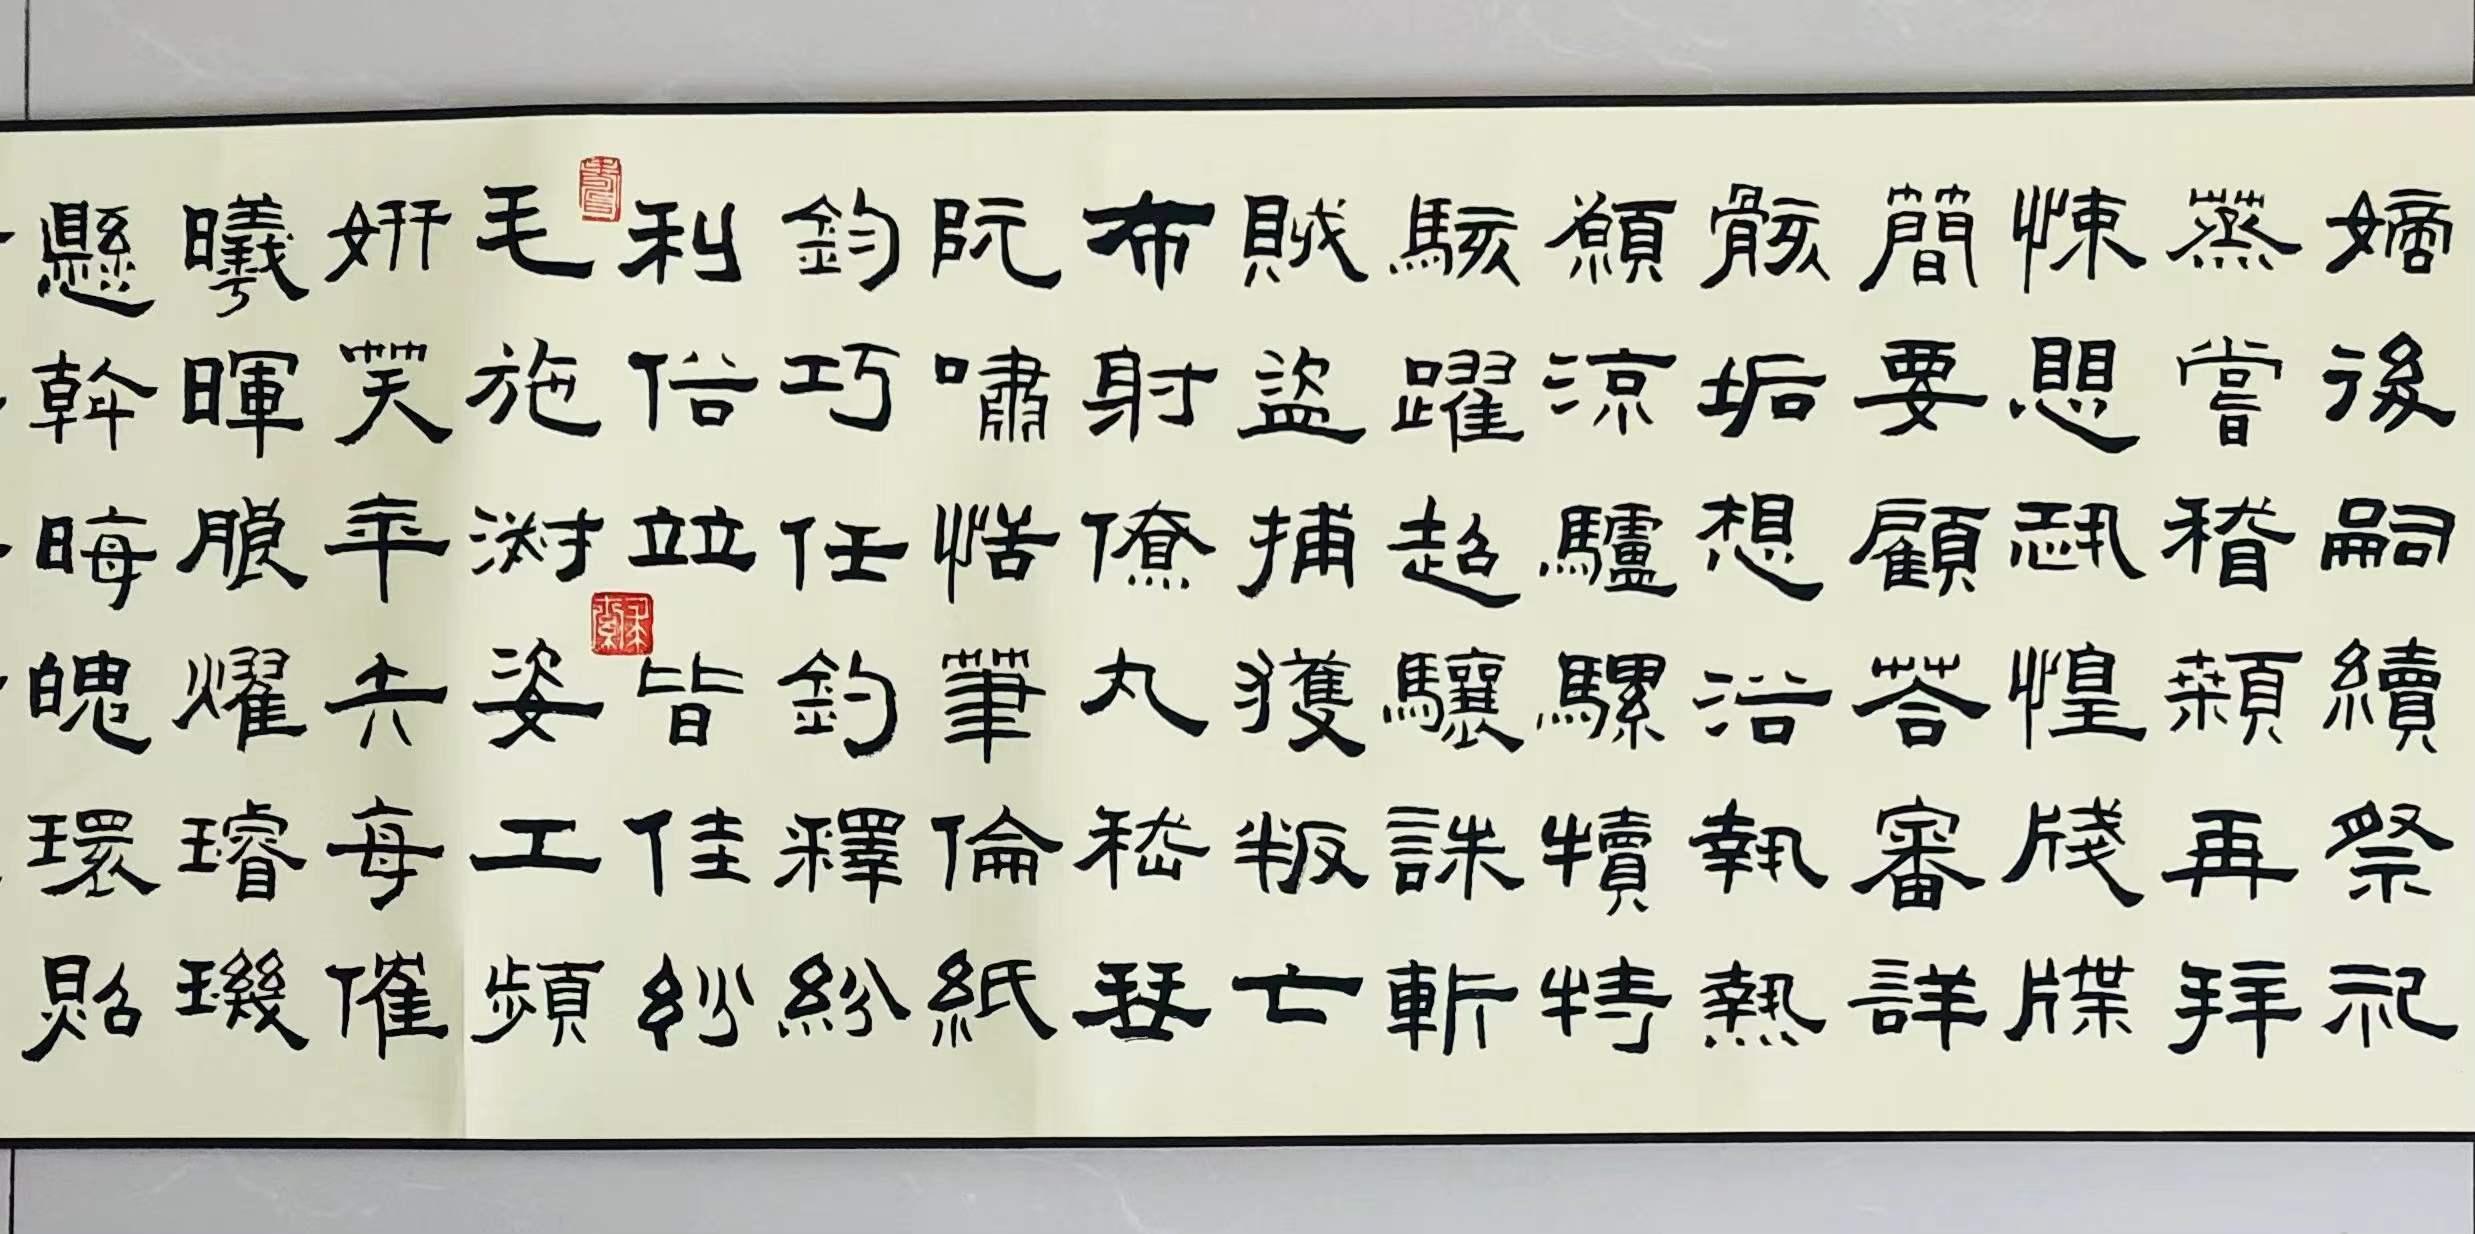 嫡後嗣續祭祀
蒸嘗稽顙再拜
悚愳恐惶牋牒
簡要顧荅審詳
骸垢想浴執熱
願涼驢騾犢特
駭躍超驤誅斬
賊盜捕獲叛亡
布射僚丸嵇琴
阮嘯恬筆倫紙
鈞巧任釣釋紛
利俗竝皆佳玅
毛施淑姿工頻
妍笑年矢每催
曦暉朗燿璿璣
懸斡晦魄環照